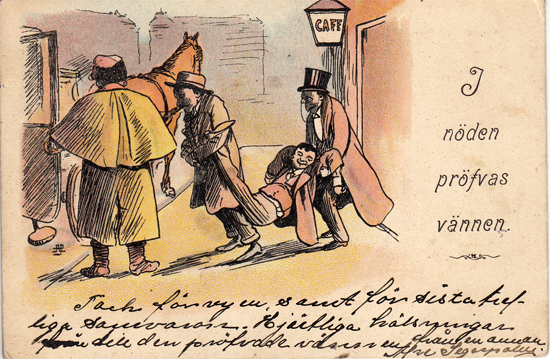 CAFE
I
nöden
pröfvas
vännen.
Tack för vyen, samt för sista tref-
liga samvaron. Hjärtliga hälsningar
till den pröfvade vännen från en annan